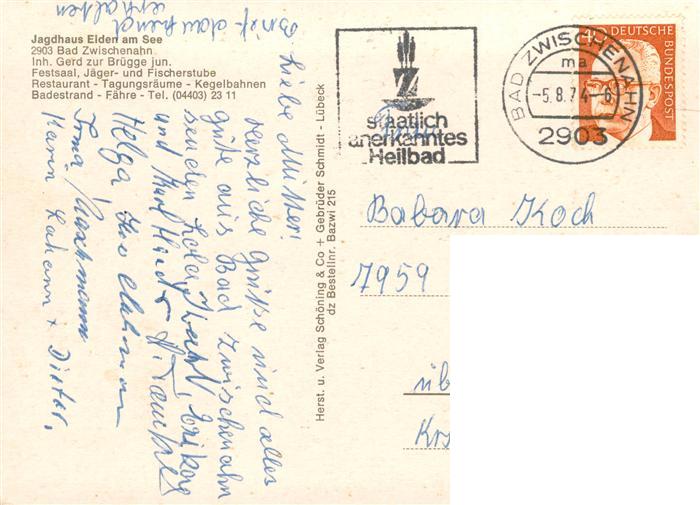 Jagdhaus Eiden am See
2903 Bad Zwischenahn
Inh. Gerd zur Brügge jun.
Festsaal, Jäger- und Fischerstube
Restaurant - Tagungsräume - Kegelbahnen
Badestrand - Fähre - Tel. (04403) 23 11
Brief dankend
erhalten
Liebe Mutter!
Herzliche Grüße und alles
gute aus Bad Zwischenahn
senden Lola, Erika
und Karl Heider
Helga
Irma
Karin Dieter,
Herst. u. Verlag Schöning & Co + Gebrüder Schmidt - Lübeck
dz Bestellnr. Bazwi 215
Z
staatlich
anerkanntes
Heilbad
BAD ZWISCHENAHN
ma
-5.8.74-6
2903
40 DEUTSCHE
BUNDESPOST
Babara Koch
7959
üb
Krs